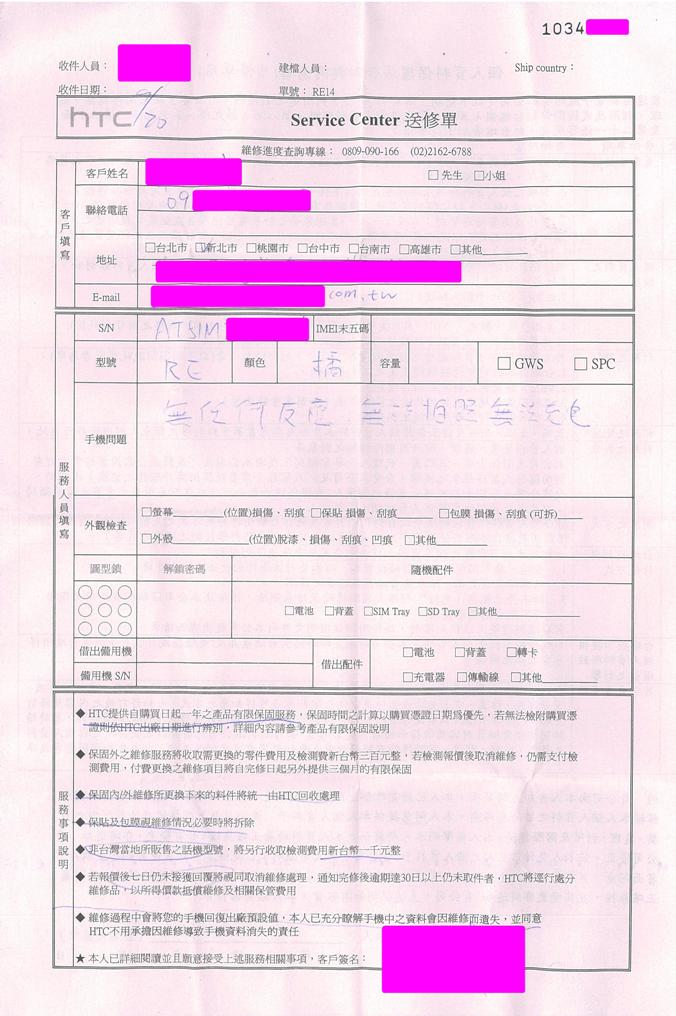 1034
收件人員：
建檔人員：
Ship country：
收件日期：
9/20
單號： RE14
hTC
Service Center 送修單
維修進度查詢專線： 0809-090-166 (02)2162-6788
客戶填寫
客戶姓名
□先生 □小姐
聯絡電話
09
地址
□台北市 □新北市 □桃園市 □台中市 □台南市 □高雄市 □其他
E-mail
com.tw
服務人員填寫
S/N
AT51M
IMEI末五碼
型號
RE
顏色
橘
容量
□ GWS □ SPC
手機問題
無任何反應、無法拍照 無法充電
外觀檢查
□螢幕______(位置)損傷、刮痕 □保貼 損傷、刮痕______ □包膜 損傷、刮痕 (可拆)____
□外殼______(位置)脫漆、損傷、刮痕、凹痕 □其他______
圖型鎖
解鎖密碼
隨機配件
□電池 □背蓋 □SIM Tray □SD Tray □其他______
借出備用機
備用機 S/N
借出配件
□電池 □背蓋 □轉卡
□充電器 □傳輸線 □其他______
服務事項說明
◆ HTC提供自購買日起一年之產品有限保固服務，保固時間之計算以購買憑證日期為優先，若無法檢附購買憑
證則依HTC出廠日期進行辨別，詳細內容請參考產品有限保固說明
◆ 保固外之維修服務將收取需更換的零件費用及檢測費新台幣三百元整，若檢測報價後取消維修，仍需支付檢
測費用，付費更換之維修項目將自完修日起另外提供三個月的有限保固
◆ 保固內/外維修所更換下來的料件將統一由HTC回收處理
◆ 保貼及包膜視維修情況必要時將拆除
◆ 非台灣當地所販售之話機型號，將另行收取檢測費用新台幣一千元整
◆ 若報價後七日仍未接獲回覆將視同取消維修處理，通知完修後逾期達30日以上仍未取件者，HTC將逕行處分
維修品，以所得價款抵償維修及相關保管費用
◆ 維修過程中會將您的手機回復出廠預設值，本人已充分瞭解手機中之資料會因維修而遺失，並同意
HTC不用承擔因維修導致手機資料消失的責任
★ 本人已詳細閱讀並且願意接受上述服務相關事項，客戶簽名：